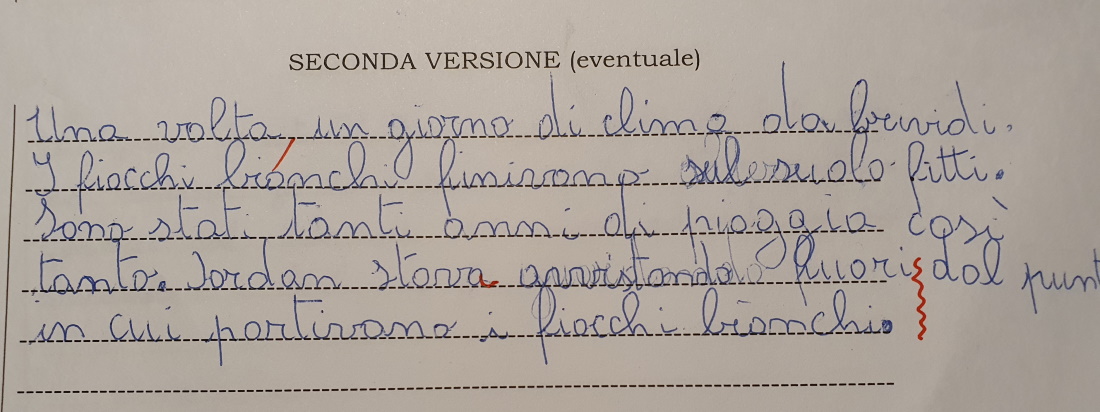 SECONDA VERSIONE (eventuale)
Una volta, un giorno di clima da brividi.
I fiocchi bianchi finivano sul suolo fitti.
Sono stati tanti anni di pioggia così
tanto. Jordan stava avvistando fuori dal punt
in cui partivano i fiocchi bianchi.